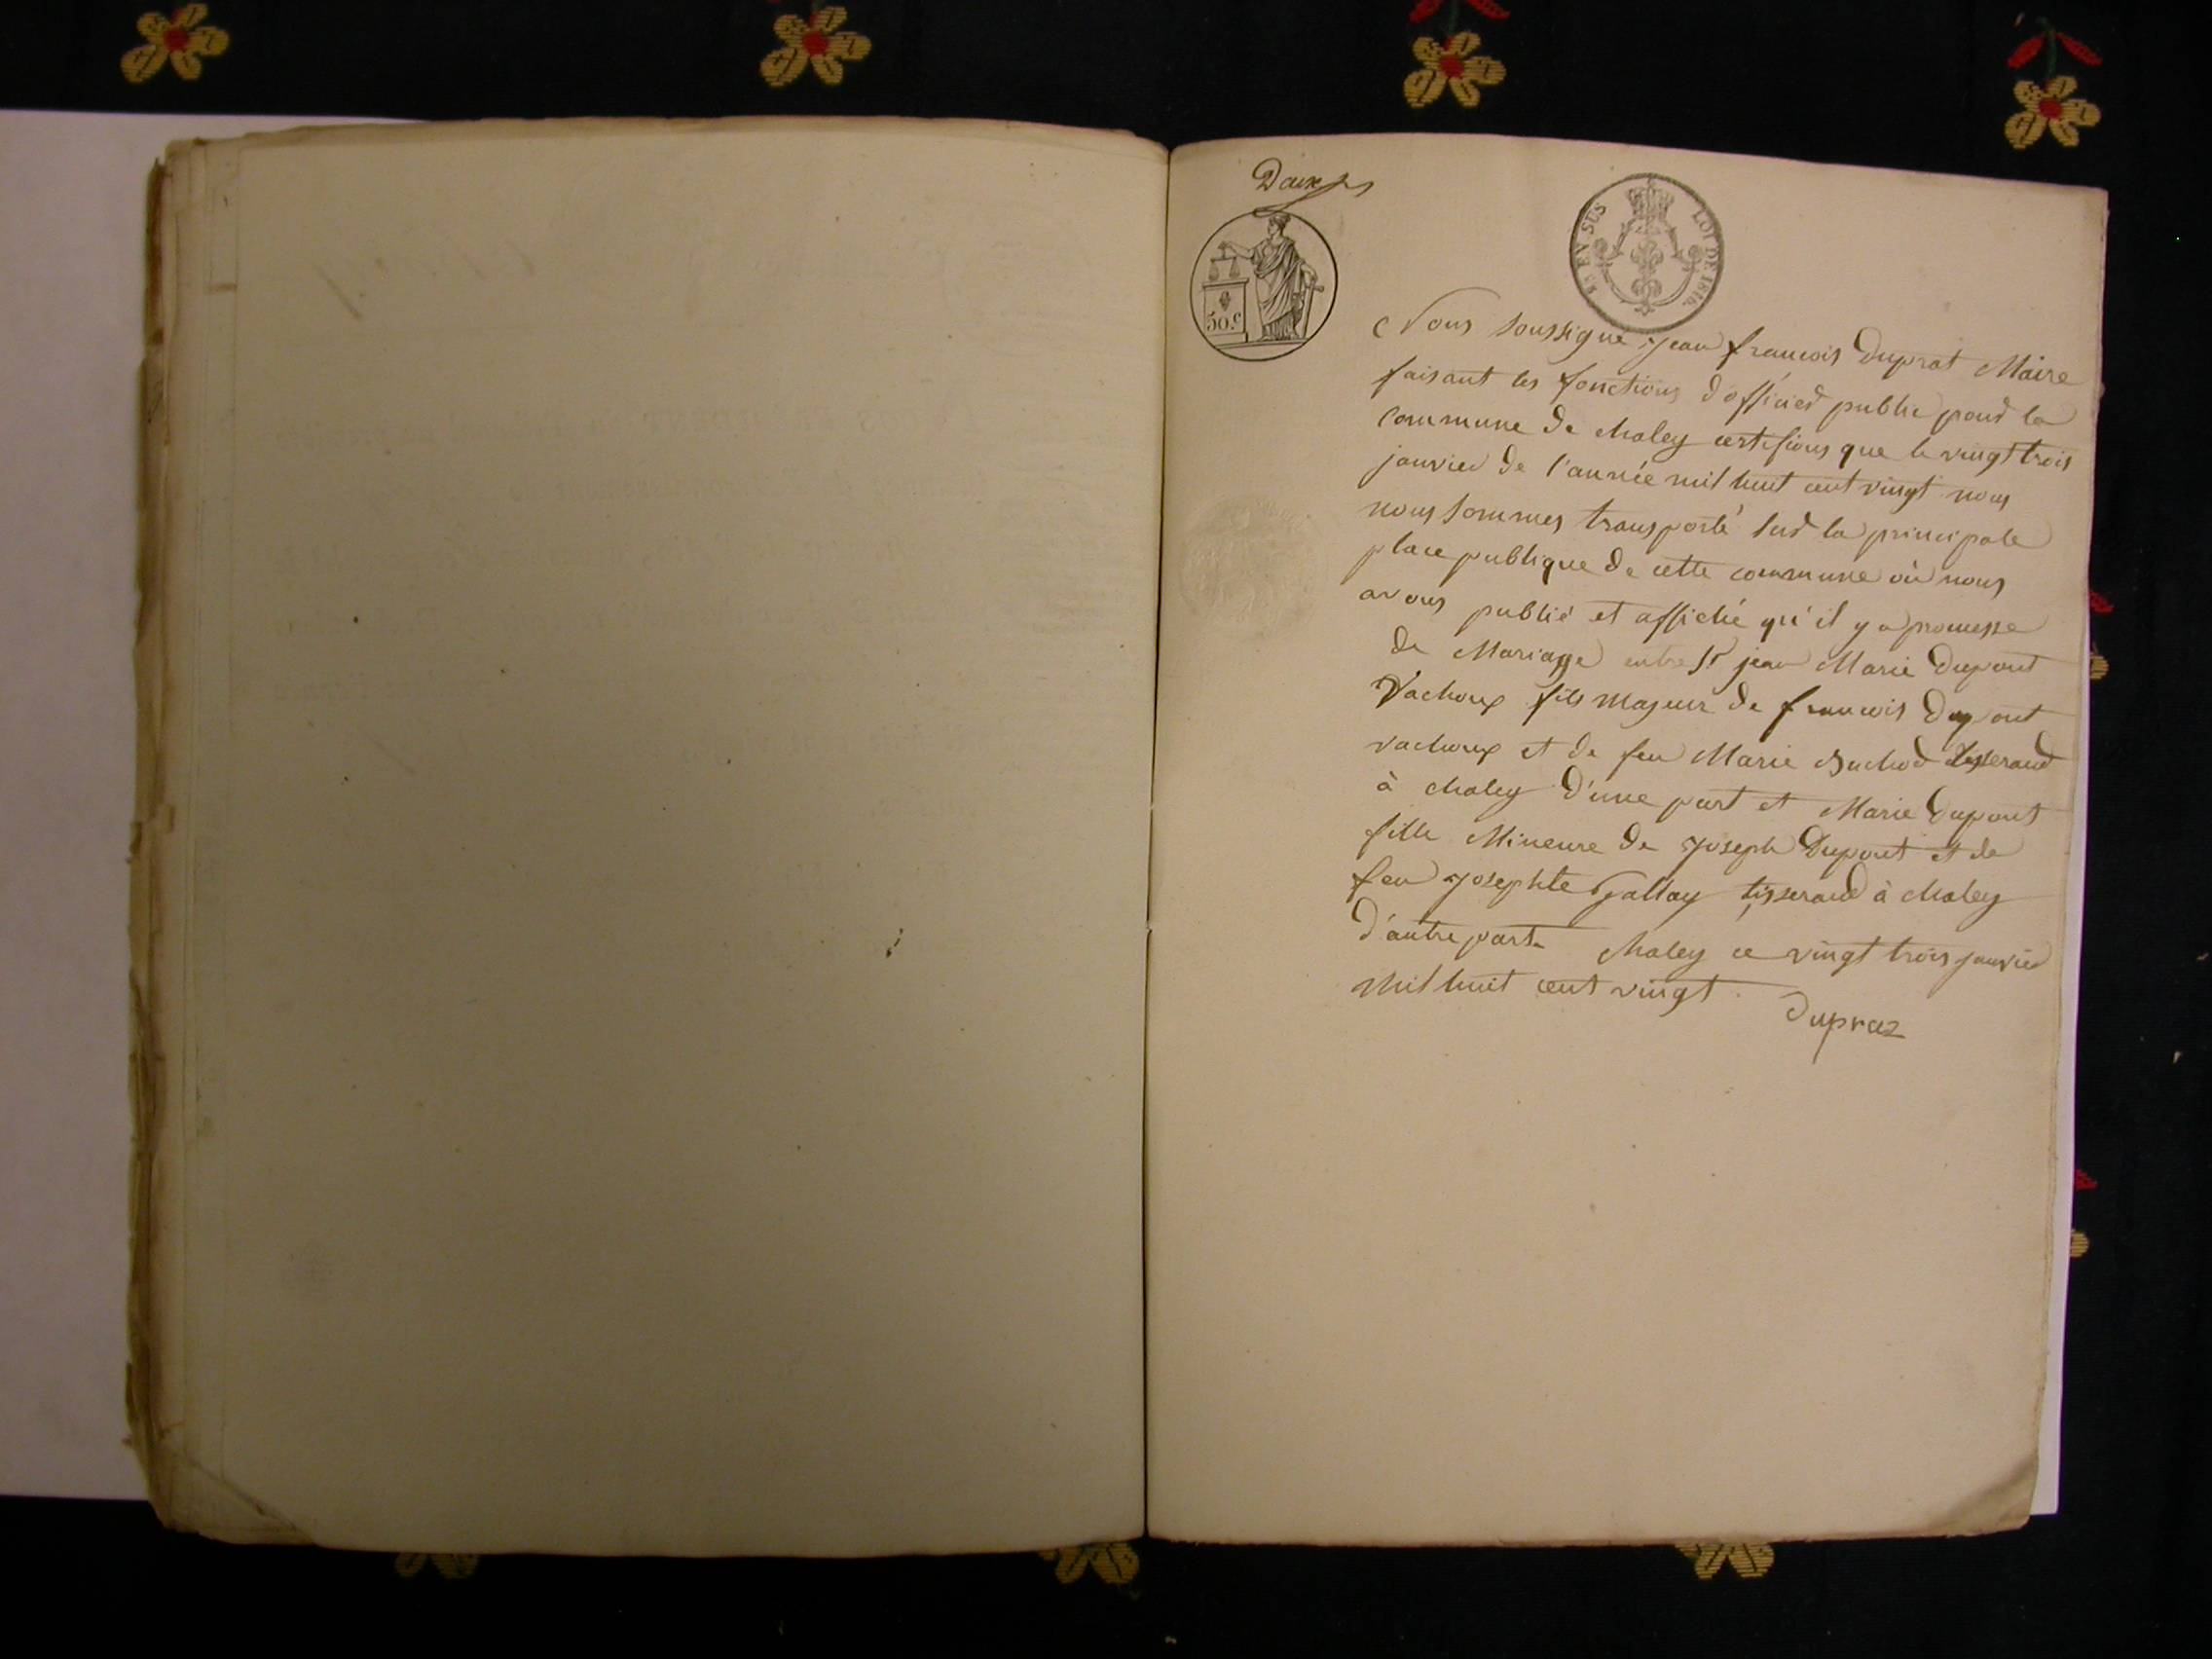 EN SUS LOI DE 1816.
50.c
Nous soussigné Jean francois Duprat Maire
faisant les fonctions d'officier public pour la
commune de Chaley certifions que le vingt trois
janvier de l'année mil huit cent vingt nous
nous sommes transporté sur la principale
place publique de cette commune où nous
avons publié et affiché qu'il y a promesse
de Mariage entre Sr jean Marie Dupont
Vachoux fils majeur de francois Dupont
vachoux et de feu Marie tisserand
à Chaley d'une part et Marie Dupont
fille Mineure de joseph Dupont et de
feu josephte Gallay tisserand à Chaley
d'autre part Chaley ce vingt trois janvier
Mil huit cent vingt.
Dupraz